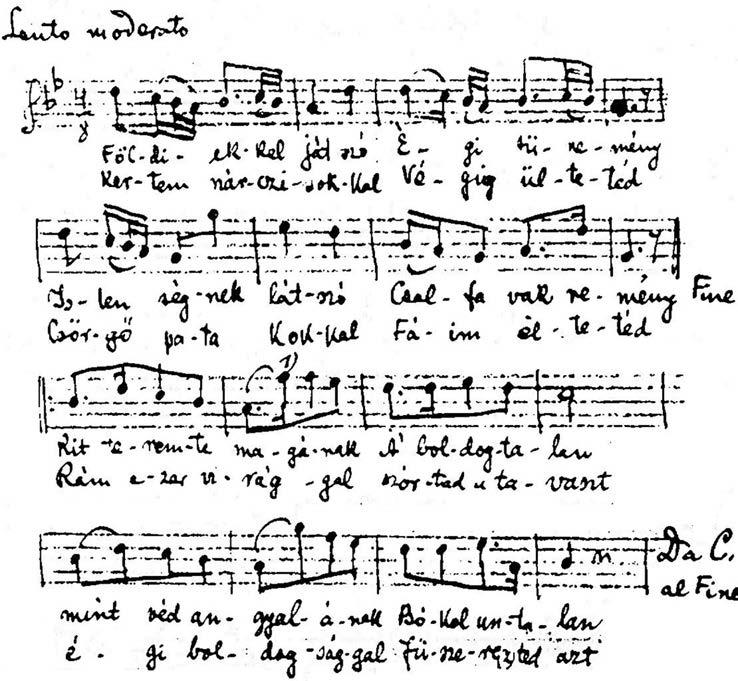 Lento moderato
Föl-di- ek-kel ját szó É- gi tü-ne-mény
Ker-tem nár-czi-sok-kal Vé-gig ül-te-téd
Is-ten ség-nek lát-szó Csal-fa vak re-mény Fine
Csör-gő pa-ta kok-kal Fá-im él-te-téd
Kit te-rem-te ma-gá-nak A bol-dog-ta-lan
Rám e-zer vi-rág-gal szór-tad u ta-vaszt
mint véd an-gyal-á-nak Bó-kol un-ta-lan
Da C.
al Fine
é- gi bol-dog-ság-gal fü-sze-rez ted azt